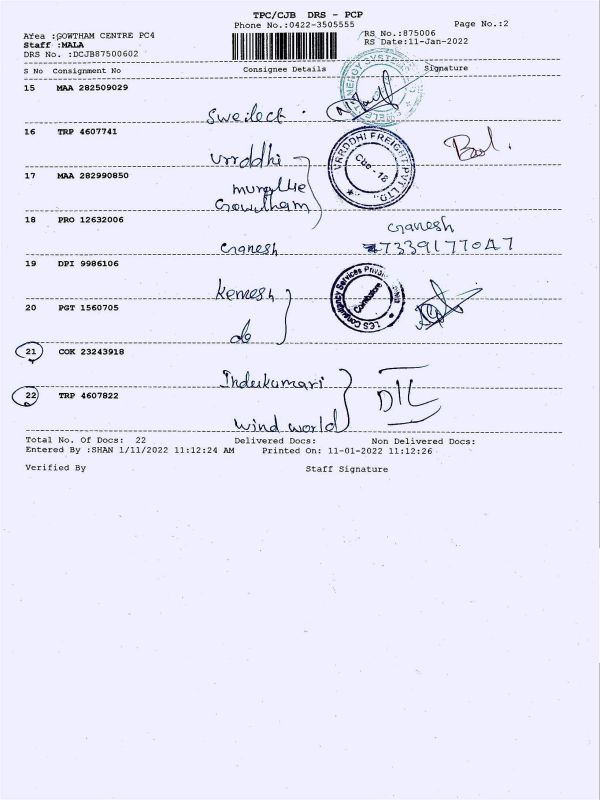 TPC/CJB DRS - PCP
Phone No.:0422-3505555
Page No.:2
Area :GOWTHAM CENTRE PC4
RS No.:875006
Staff :MALA
RS Date:11-Jan-2022
DRS No. :DCJB87500602
S No Consignment No Consignee Details Signature
15 MAA 282509029
Swelect.
16 TRP 4607741
Vrrddhi
VRRDDHI FREIGHT PVT LTD.
Cbe - 18
17 MAA 282990850
Gowtham
18 PRO 12632006
Ganesh
Ganesh
7339177047
19 DPI 9986106
LCS Consultancy Services Private
Coimbatore
20 PGT 1560705
do
21 COK 23243918
Indukumari
22 TRP 4607822
DIL
Wind world
Total No. Of Docs: 22 Delivered Docs: Non Delivered Docs:
Entered By :SHAN 1/11/2022 11:12:24 AM Printed On: 11-01-2022 11:12:26
Verified By Staff Signature